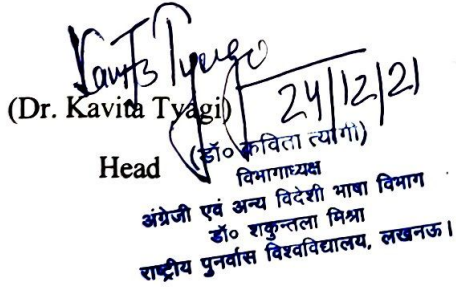 Kavita Tyagi
24/12/21
(Dr. Kavita Tyagi)
(डॉ० कविता त्यागी)
Head
विभागाध्यक्ष
अंग्रेजी एवं अन्य विदेशी भाषा विभाग
डॉ० शकुन्तला मिश्रा
राष्ट्रीय पुनर्वास विश्वविद्यालय, लखनऊ।